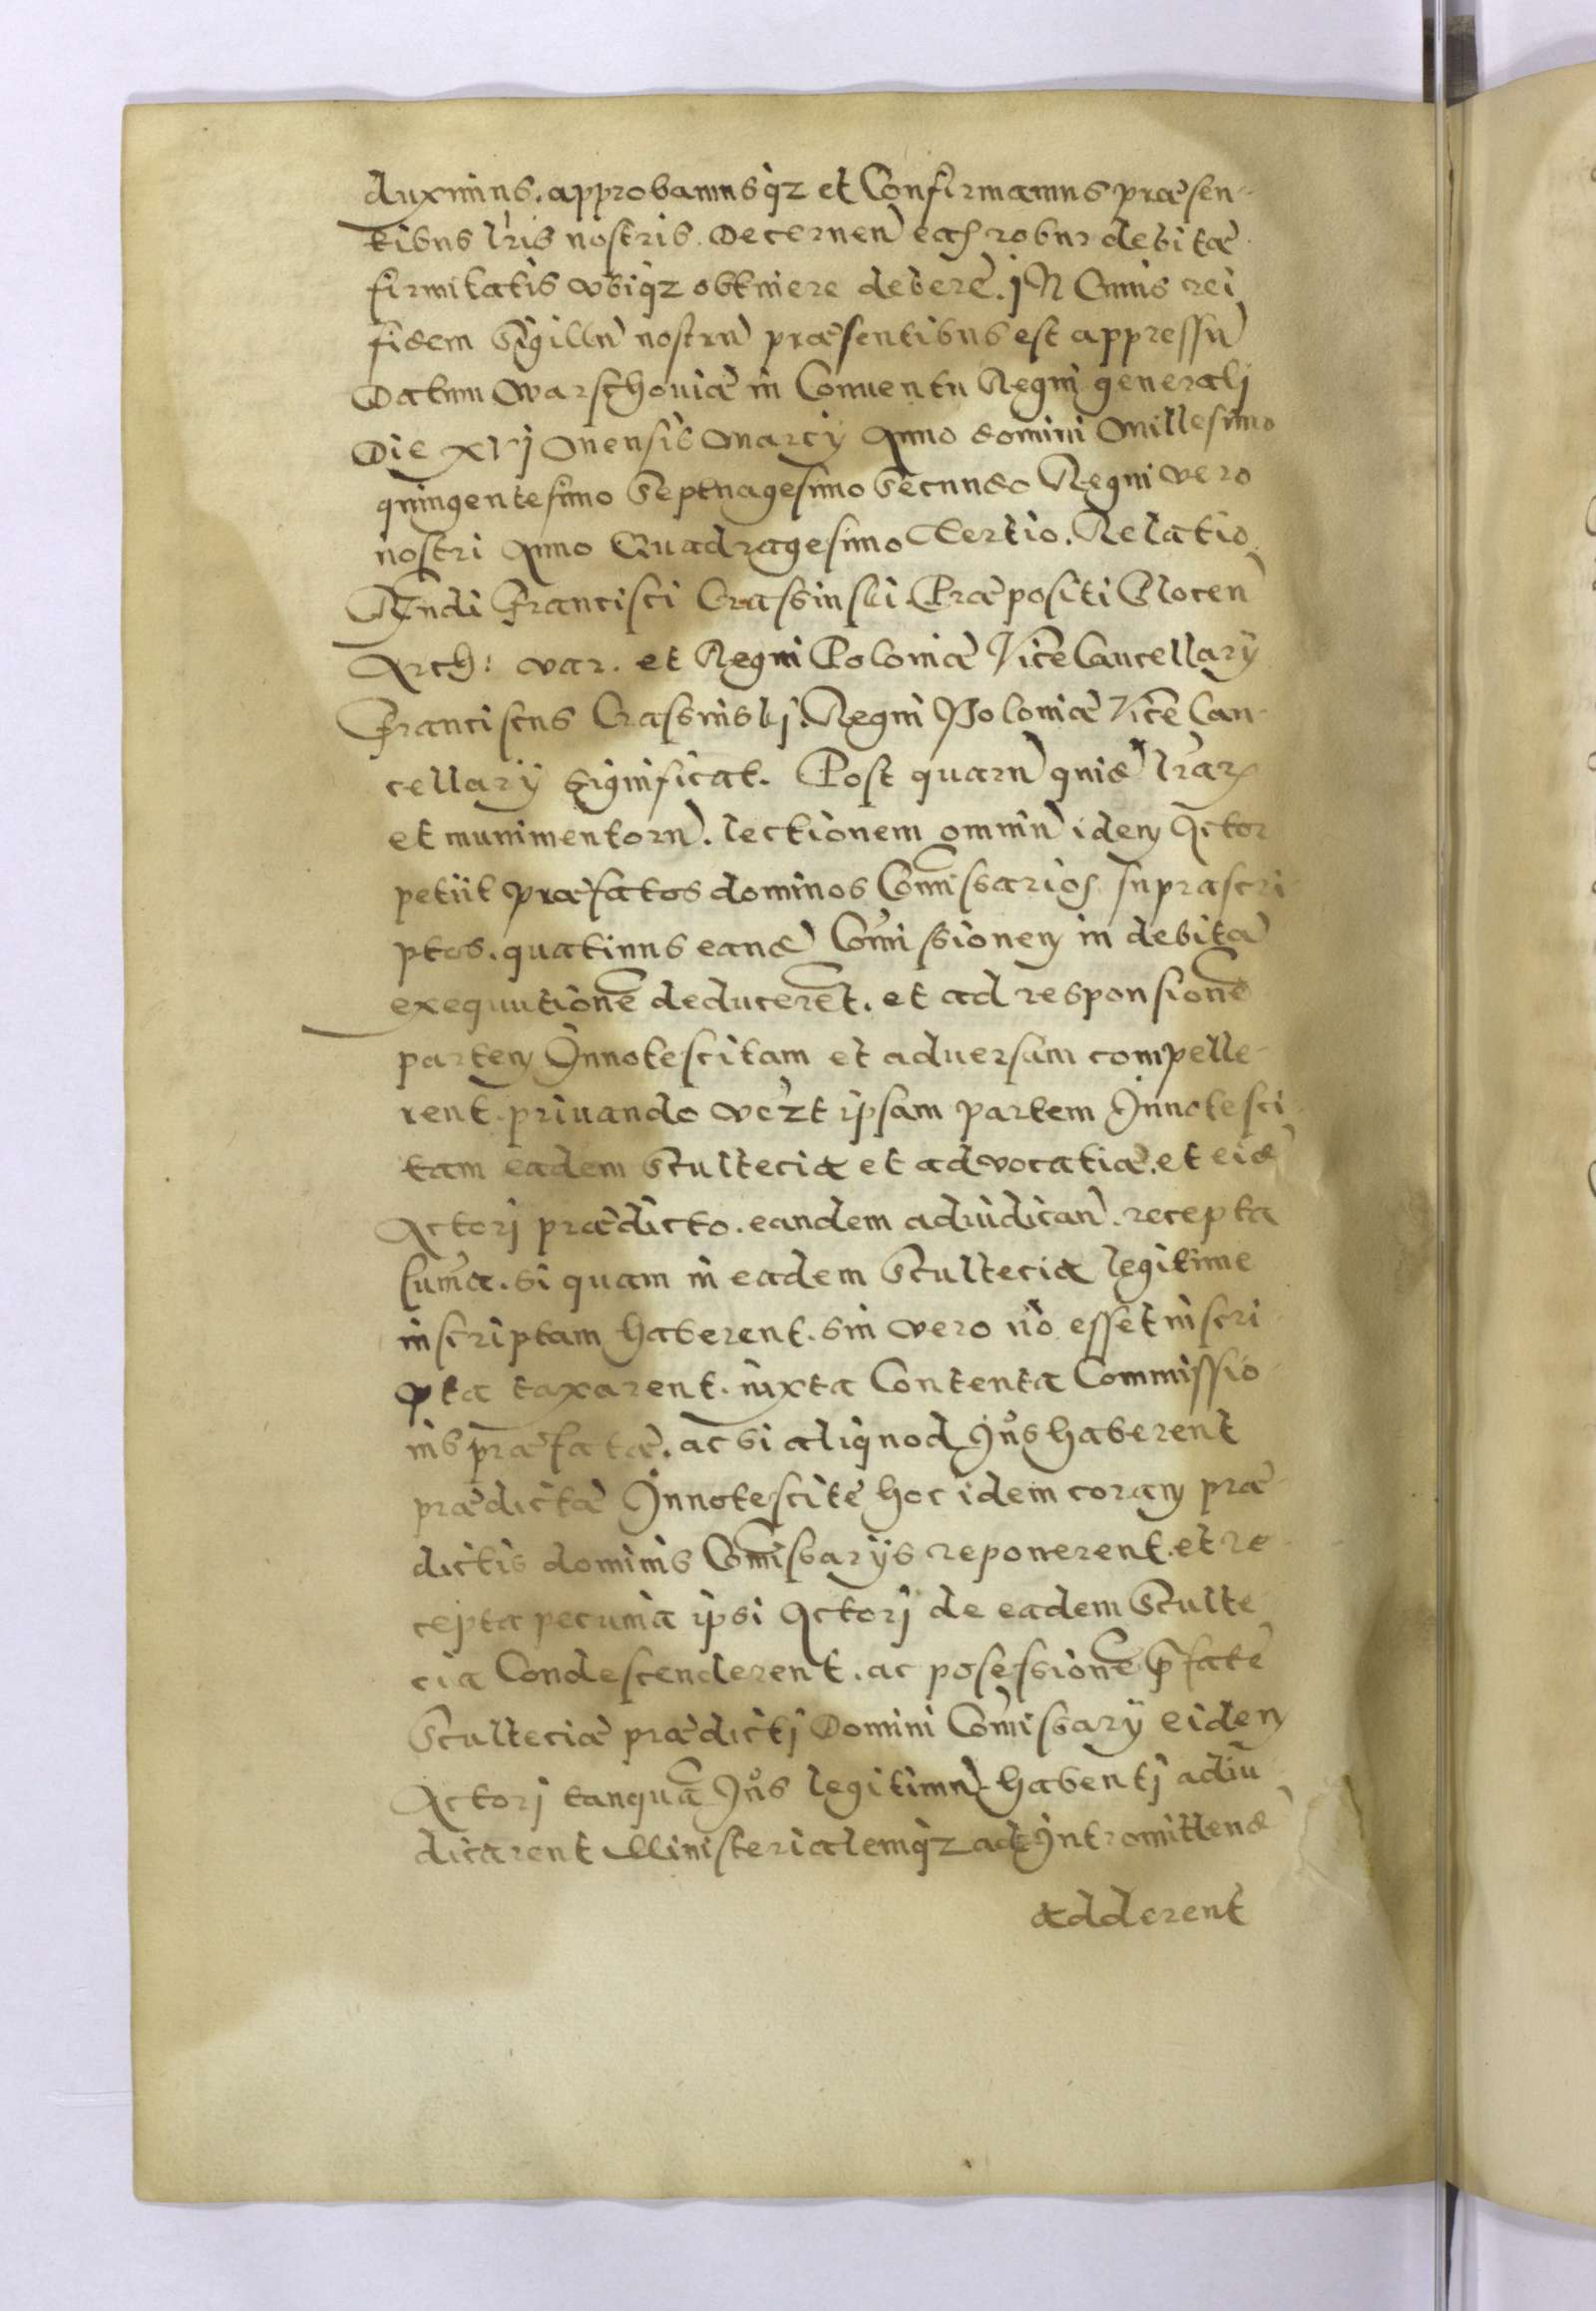 duximus. approbamusqz et Confirmamus præsen-
tibus lr̃is nostris. Decernen̄ eas robur debitæ
firmitatis vbiqz obtinere debere. jN Cuius rei
fidem Sigillũ nostrũ præsentibus est appressũ
Datum Warschouiæ in Conuentu Regni generalj
Die xvj Mensis Marcÿ Anno domini Millesimo
quingentesimo Septuagesimo Secundo Regni vero
nostri Anno Quadragesimo Tertio. Relatio
Rñdi Francisci Crassinski Præpositi Plocen̄
Arch: var. et Regni Poloniæ ViceCancellarÿ
Franciscus Crassinskj. Regni Poloniæ Vice Can-
cellarÿ significat. Post quarũ quid̃ lr̃arꝝ
et munimentorũ. lectionem omniũ idem Actor
petiit præfatos dominos Com̃issarios suprascri-
ptos. quatinus eand̃ Com̃issionem in debitã
exequutionẽ deducerẽt. et ad responsionẽ
partem Innotescitam et aduersam compelle-
rent. priuando vezt ipsam partem Innotesci
tam eadem Scultecia et advocatia. et eid̃
Actorj prædicto. eandem adiudican̄. recepta
sum̃a. si quam in eadem Scultecia legitime
inscriptam haberent. sin vero nõ esset inscri
pta taxarent. iuxta Contenta Commissio-
nis præfatæ. ac si aliquod Jus haberent
prædictæ Innotescitẽ hoc idem coram præ-
dictis dominis Com̃issarÿs reponerent. et re-
cepta pecunia ipsi Actorj de eadem Sculte
cia Condescenderent. ac posessionẽ p̃fatẽ
Sculteciæ prædictj Domini Com̃issarÿ eidem
Actorj tanquã Jus legitimũ habentj adiu
dicarent Ministerialemqz ad Intromittend̃
adderent